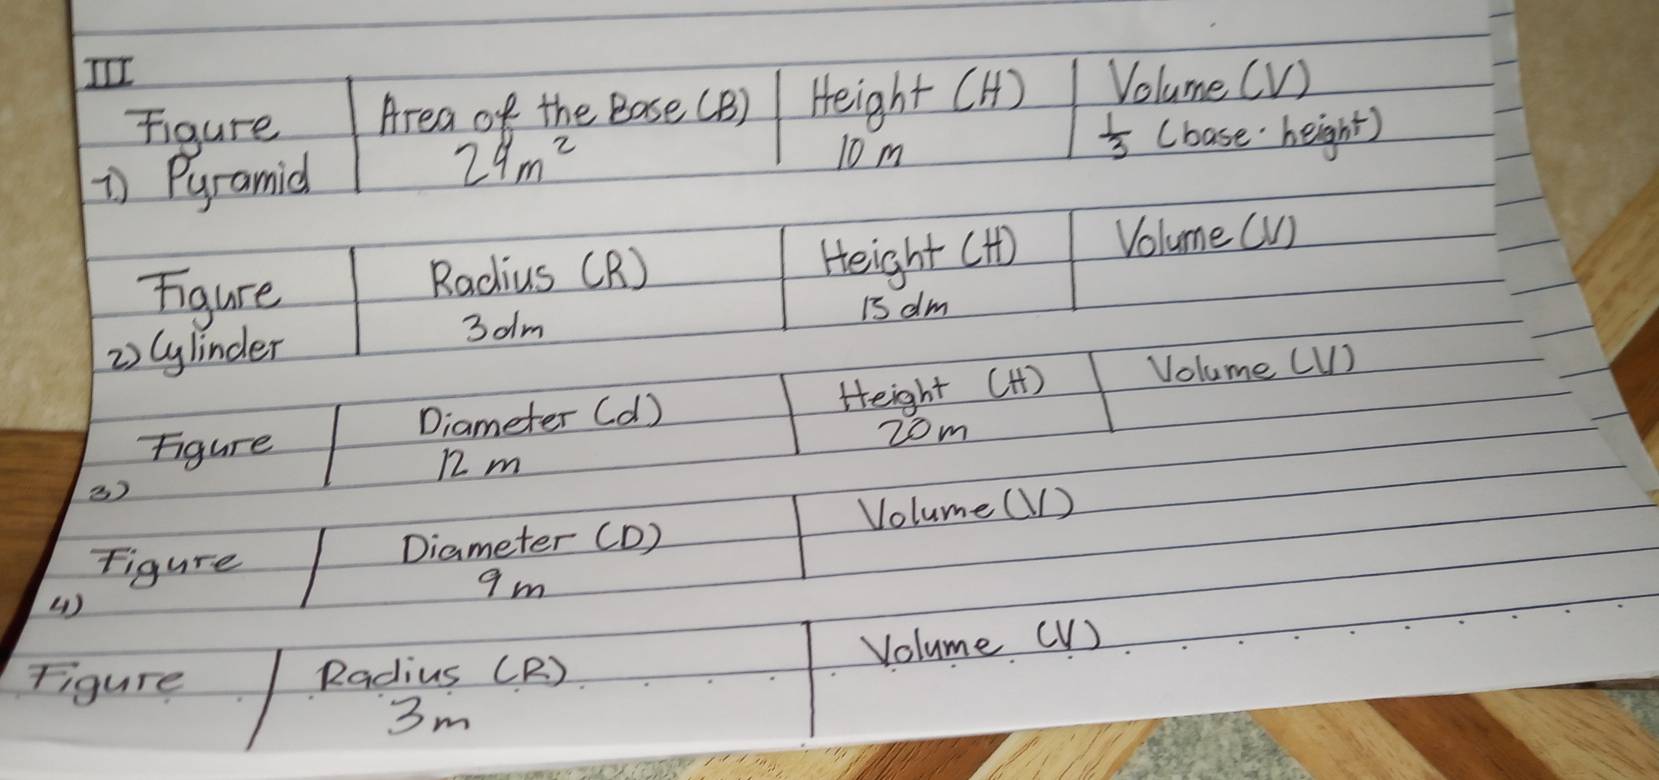 III
Figure Area of the Base (B) Height (H) Volume (V)
1) Pyramid m² 10 m 1/3 (base · height)
Figure Radius (R) Height (H) Volume (V)
2) Cylinder 3 dm 15 dm
Figure Diameter (d) Height (H) Volume (V)
3) 12 m 20 m
Figure Diameter (D) Volume (V)
4) 9 m
Figure Radius (R) Volume (V)
3 m